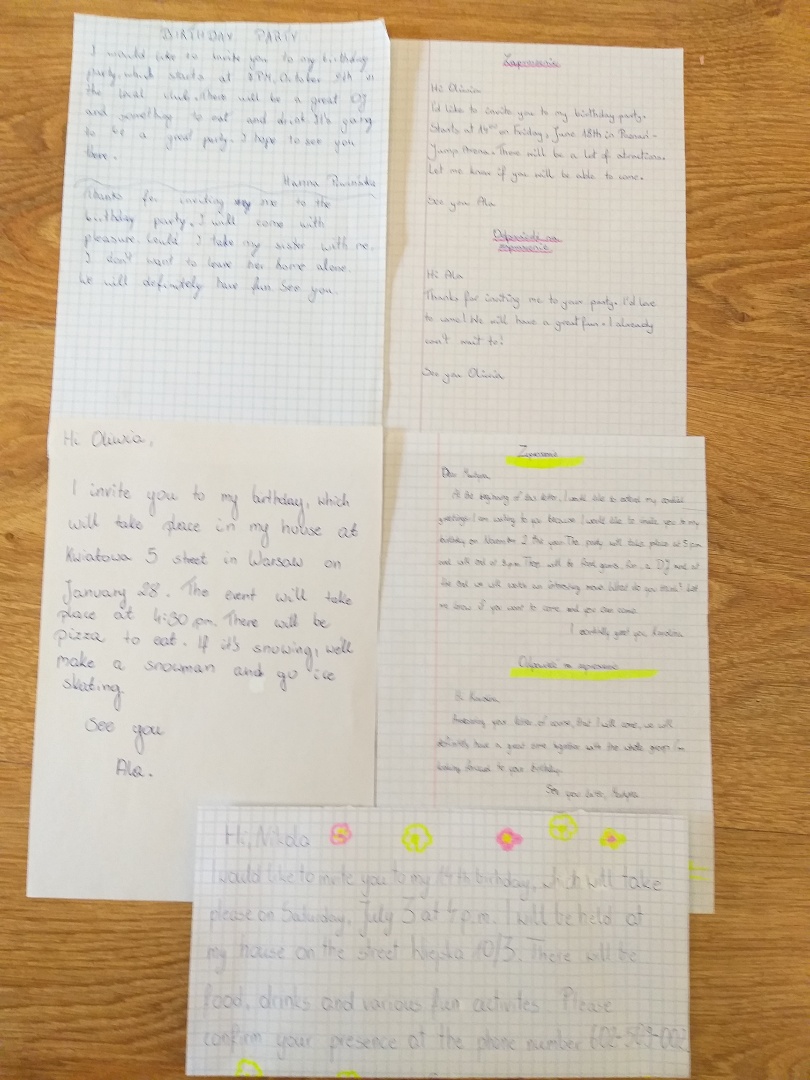 BIRTHDAY PARTY
I would like to invite you to my birthday
party, which starts at 8 PM, October 5th in
the local club. There will be a great DJ
and something to eat and drink. It's going
to be a great party. I hope to see you
there.
Hanna
Thanks for inviting me to the
birthday party. I will come with
pleasure. Could I take my sister with me.
I don't want to leave her home alone.
We will definitely have fun. See you.
Zaproszenie
Hi Oliwia
I'd like to invite you to my birthday party.
Starts at 14 on Friday, June 18th in Poznań -
Jump Arena. There will be a lot of atractions.
Let me know if you will be able to come.
See you Ala
Odpowiedź na
zaproszenie
Hi Ala
Thanks for inviting me to your party. I'd love
to come! We will have a great fun. I already
can't wait to!
See you Oliwia
Hi Oliwia,
I invite you to my birthday, which
will take place in my house at
Kwiatowa 5 street in Warsaw on
January 28. The event will take
place at 4:30 pm. There will be
pizza to eat. If it's snowing, we'll
make a snowman and go ice
skating.
See you
Ala.
Zaproszenie
Dear
At the beginning of this letter, I would like to extend my cordial
greetings. I am writing to you because I would like to invite you to my
birthday on November 2 this year. The party will take place at 5 pm
and will end at 9 pm. There will be food, games, fun, a DJ and at
the end we will watch an interesting movie. What do you think? Let
me know if you want to come and you can come.
I cordially greet you Karolina
Odpowiedź na zaproszenie
Hi Karolina
Answering your letter, of course, that I will come, we will
definitely have a great time together with the whole group. I'm
looking forward to your birthday.
See you later,
Hi, Nikola
I would like to invite you to my 14th birthday, which will take
please on Saturday, July 3 at 4 p.m. I will be held at
my house on the street 10/3. There will be
food, drinks and various fun activites. Please
confirm your presence at the phone number 602-509-002